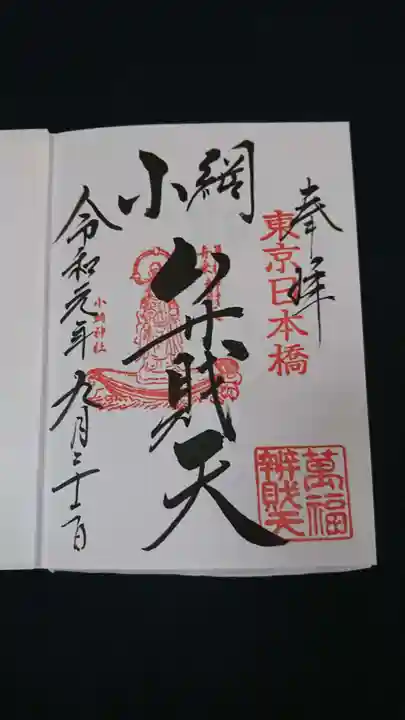 奉拝
東京日本橋
萬福
辨財天
小網
弁財天
小網神社
令和元年九月二十二日